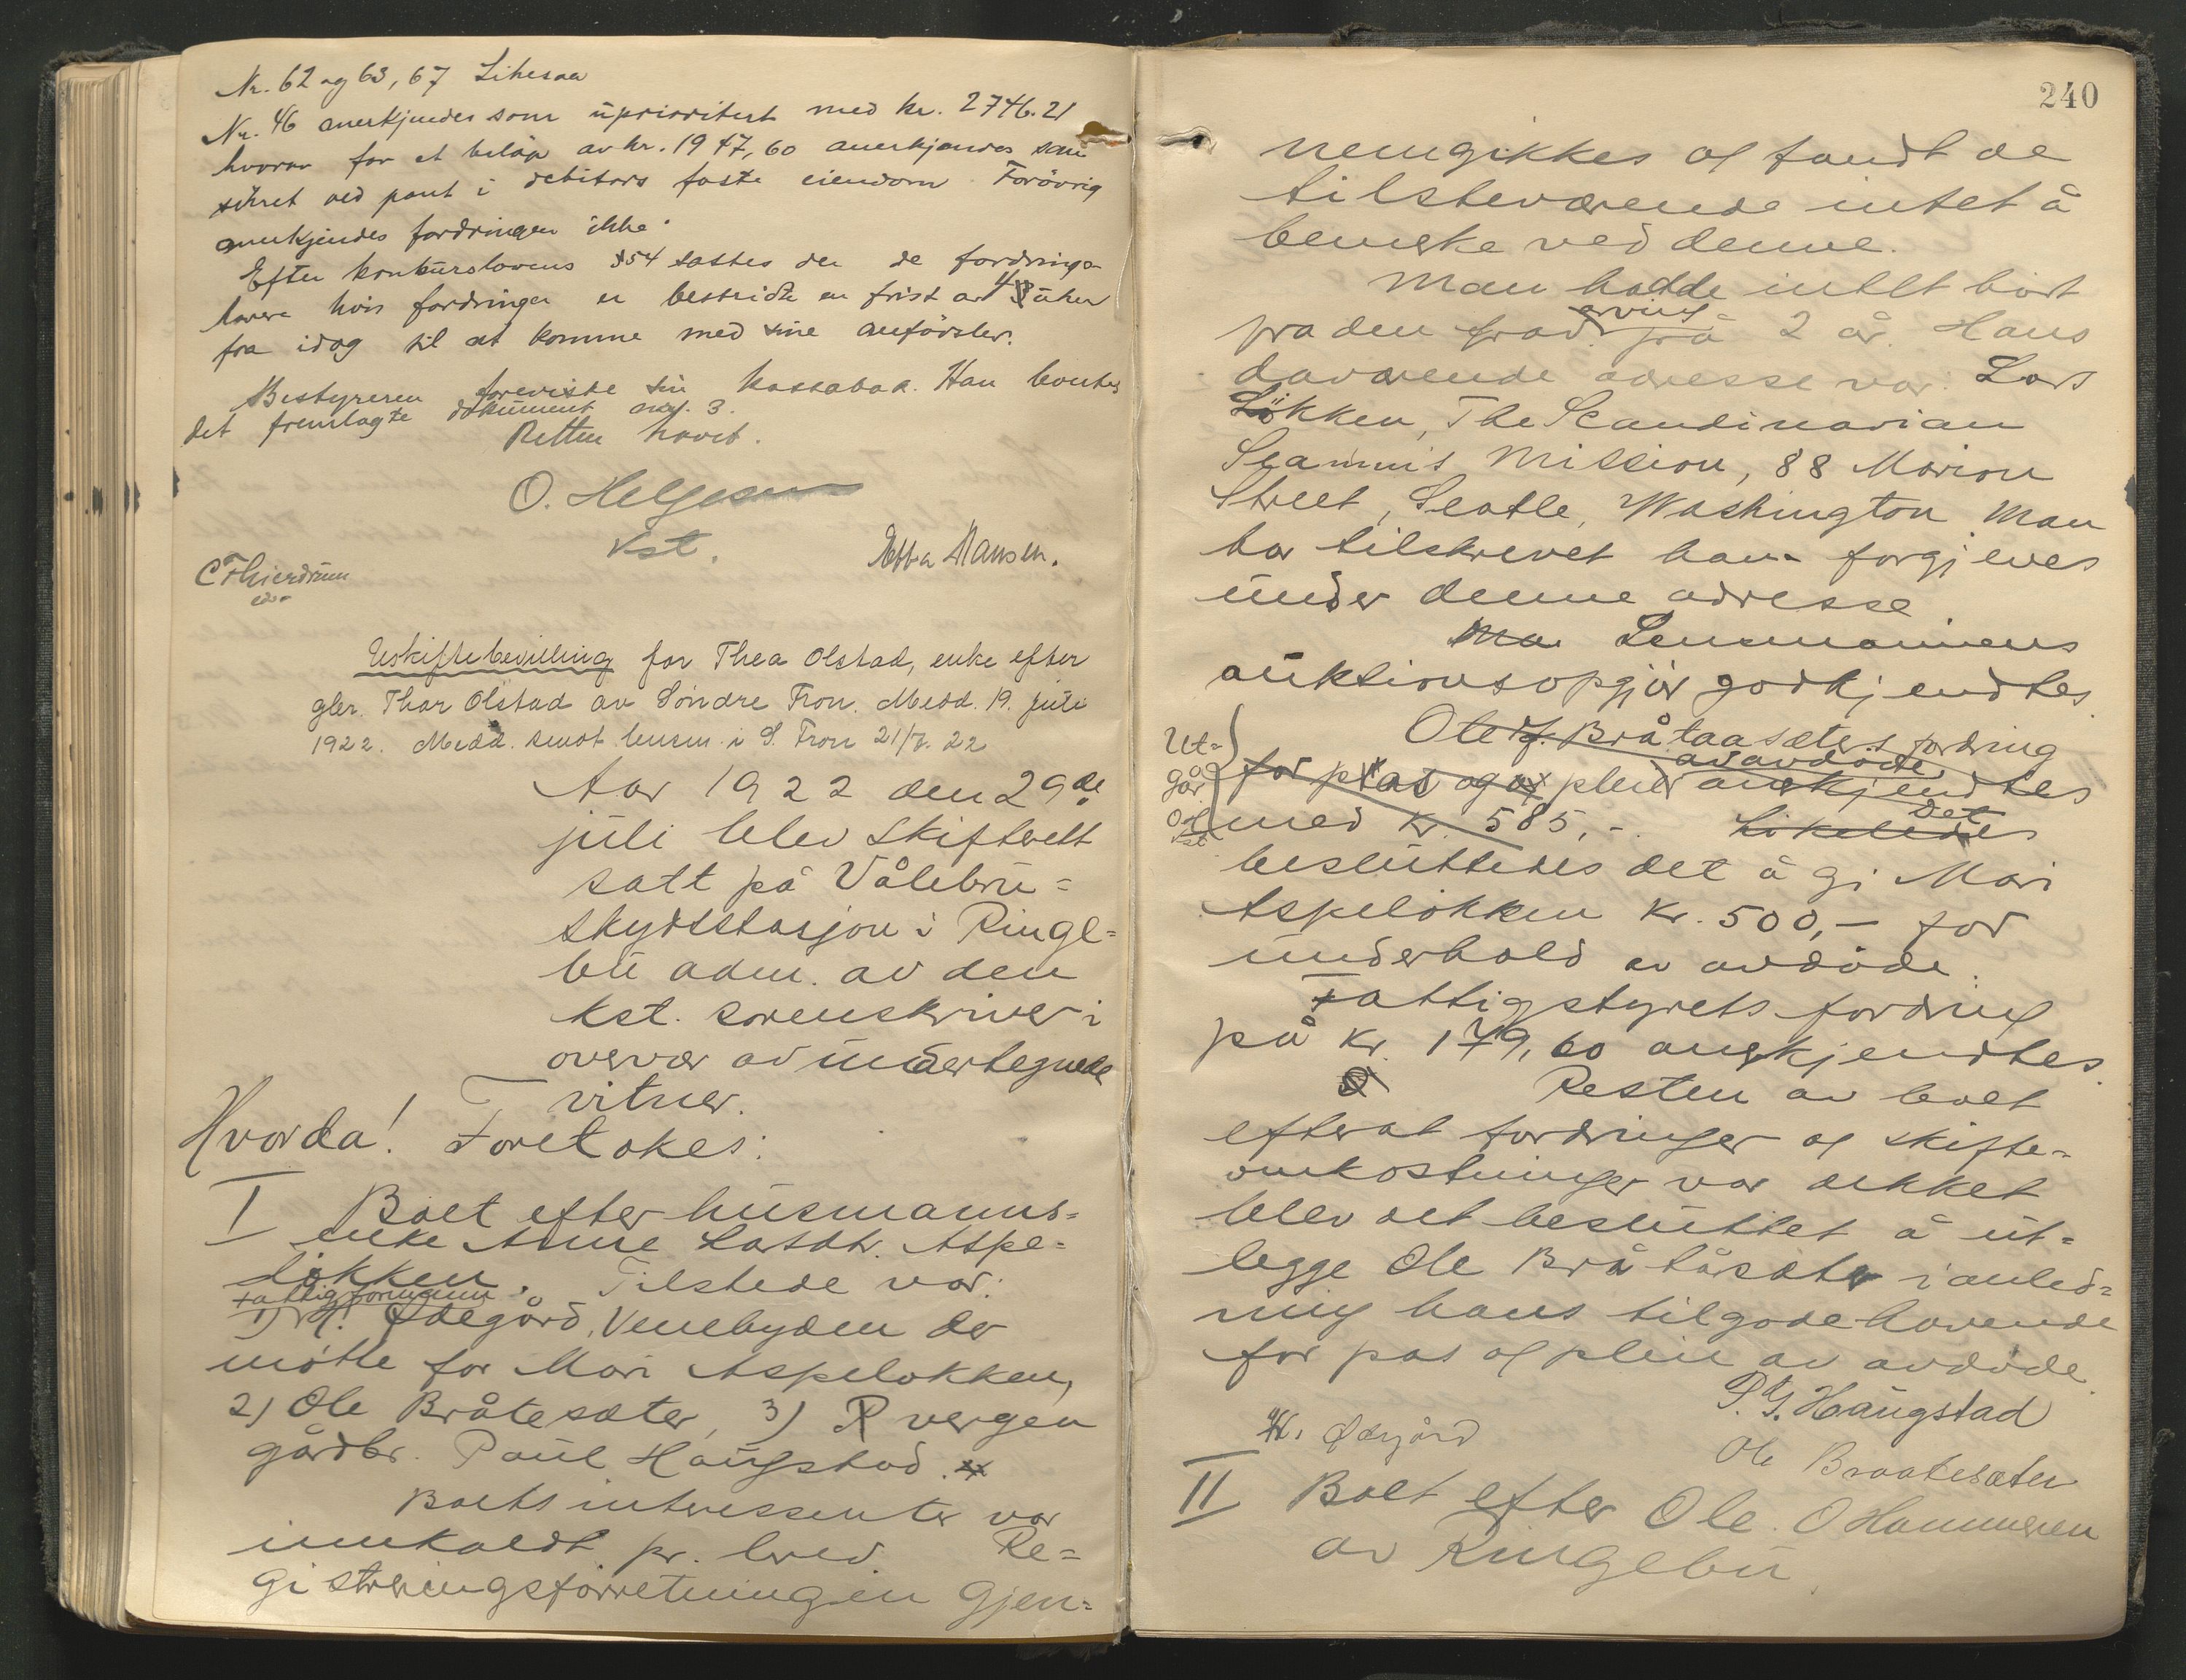 Nr. 62 og 63, 67 Likesaa
Nr. 46 anerkjendes som uprioritert med kr. 2746.21
hvorav for et beløp av kr. 1947,60 anerkjendes som
sikret ved pant i debitors faste eiendom. Forövrig
anerkjendes fordringen ikke.
Efter konkurslovens §54 sattes der de fordrings-
havere hvis fordringer er bestridt en frist av 4 uker
fra idag til at komme med sine anförsler.
Bestyreren foreviste sin kassabok. Han
det fremlagte dokument 3.
Retten hævet.
O. Helgesen
kst.
Ebba Hansen.
Uskiftebevilling for Thea Olstad, enke efter
gbr. Thor Olstad av Söndre Fron. Medd. 19. juli
1922. Medd. sendt lensm. i S. Fron 21/7. 22
Aar 1922 den 29de
juli blev skifterett
satt på Vålebru=
skydsstasjon i Ringe=
bu adm. av den
kst. sorenskriver i
overvær av undertegnede
vitner.
Hvorda! Foretokes:
I Boet efter husmanns=
enke Anne Larsdtr. Aspe=
lökken. Tilstede var:
fattigformann
1) H. Ødegård, Venebygden der
mötte for Mari Aspelökken,
2) Ole Bråtesæter, 3) vergen
gårdbr. Paul Haugstad.
Boets interessenter var
innkaldt pr. brev. Re=
gistreringsforretningen gjen=
240
nemgikkes og fandt de
tilstedeværende intet å
bemerke ved denne.
Man hadde intet hört
fra den arving på 2 år. Hans
daværende adresse var: Lars
Lökken, The Scandinavian
Seamin's Mission, 88 Marion
Street, Seatle, Washington. Man
har tilskrevet ham forgjeves
under denne adresse.
Ma Lensmannens
auktionsopgjör godkjendtes.
Ole Bråtaasæters fordring
av avdöde
for pas og plei anerkjendtes
med kr. 585,-. Likeledes
det
Ut=
går
besluttedes det å gi Mari
Aspelökken kr. 500,- for
underhold av avdöde.
Fattigstyrets fordring
på kr. 179,60 anerkjendtes.
Resten av boet
efterat fordringer og skifte=
omkostninger var dekket
blev det besluttet å ut=
legge Ole Bråtåsæter i anled=
ning hans tilgodehavende
for pas og plei av avdöde.
P. G. Haugstad
H. Ødegård
Ole Braatesæter
II Boet efter Ole O Hammeren
av Ringebu.